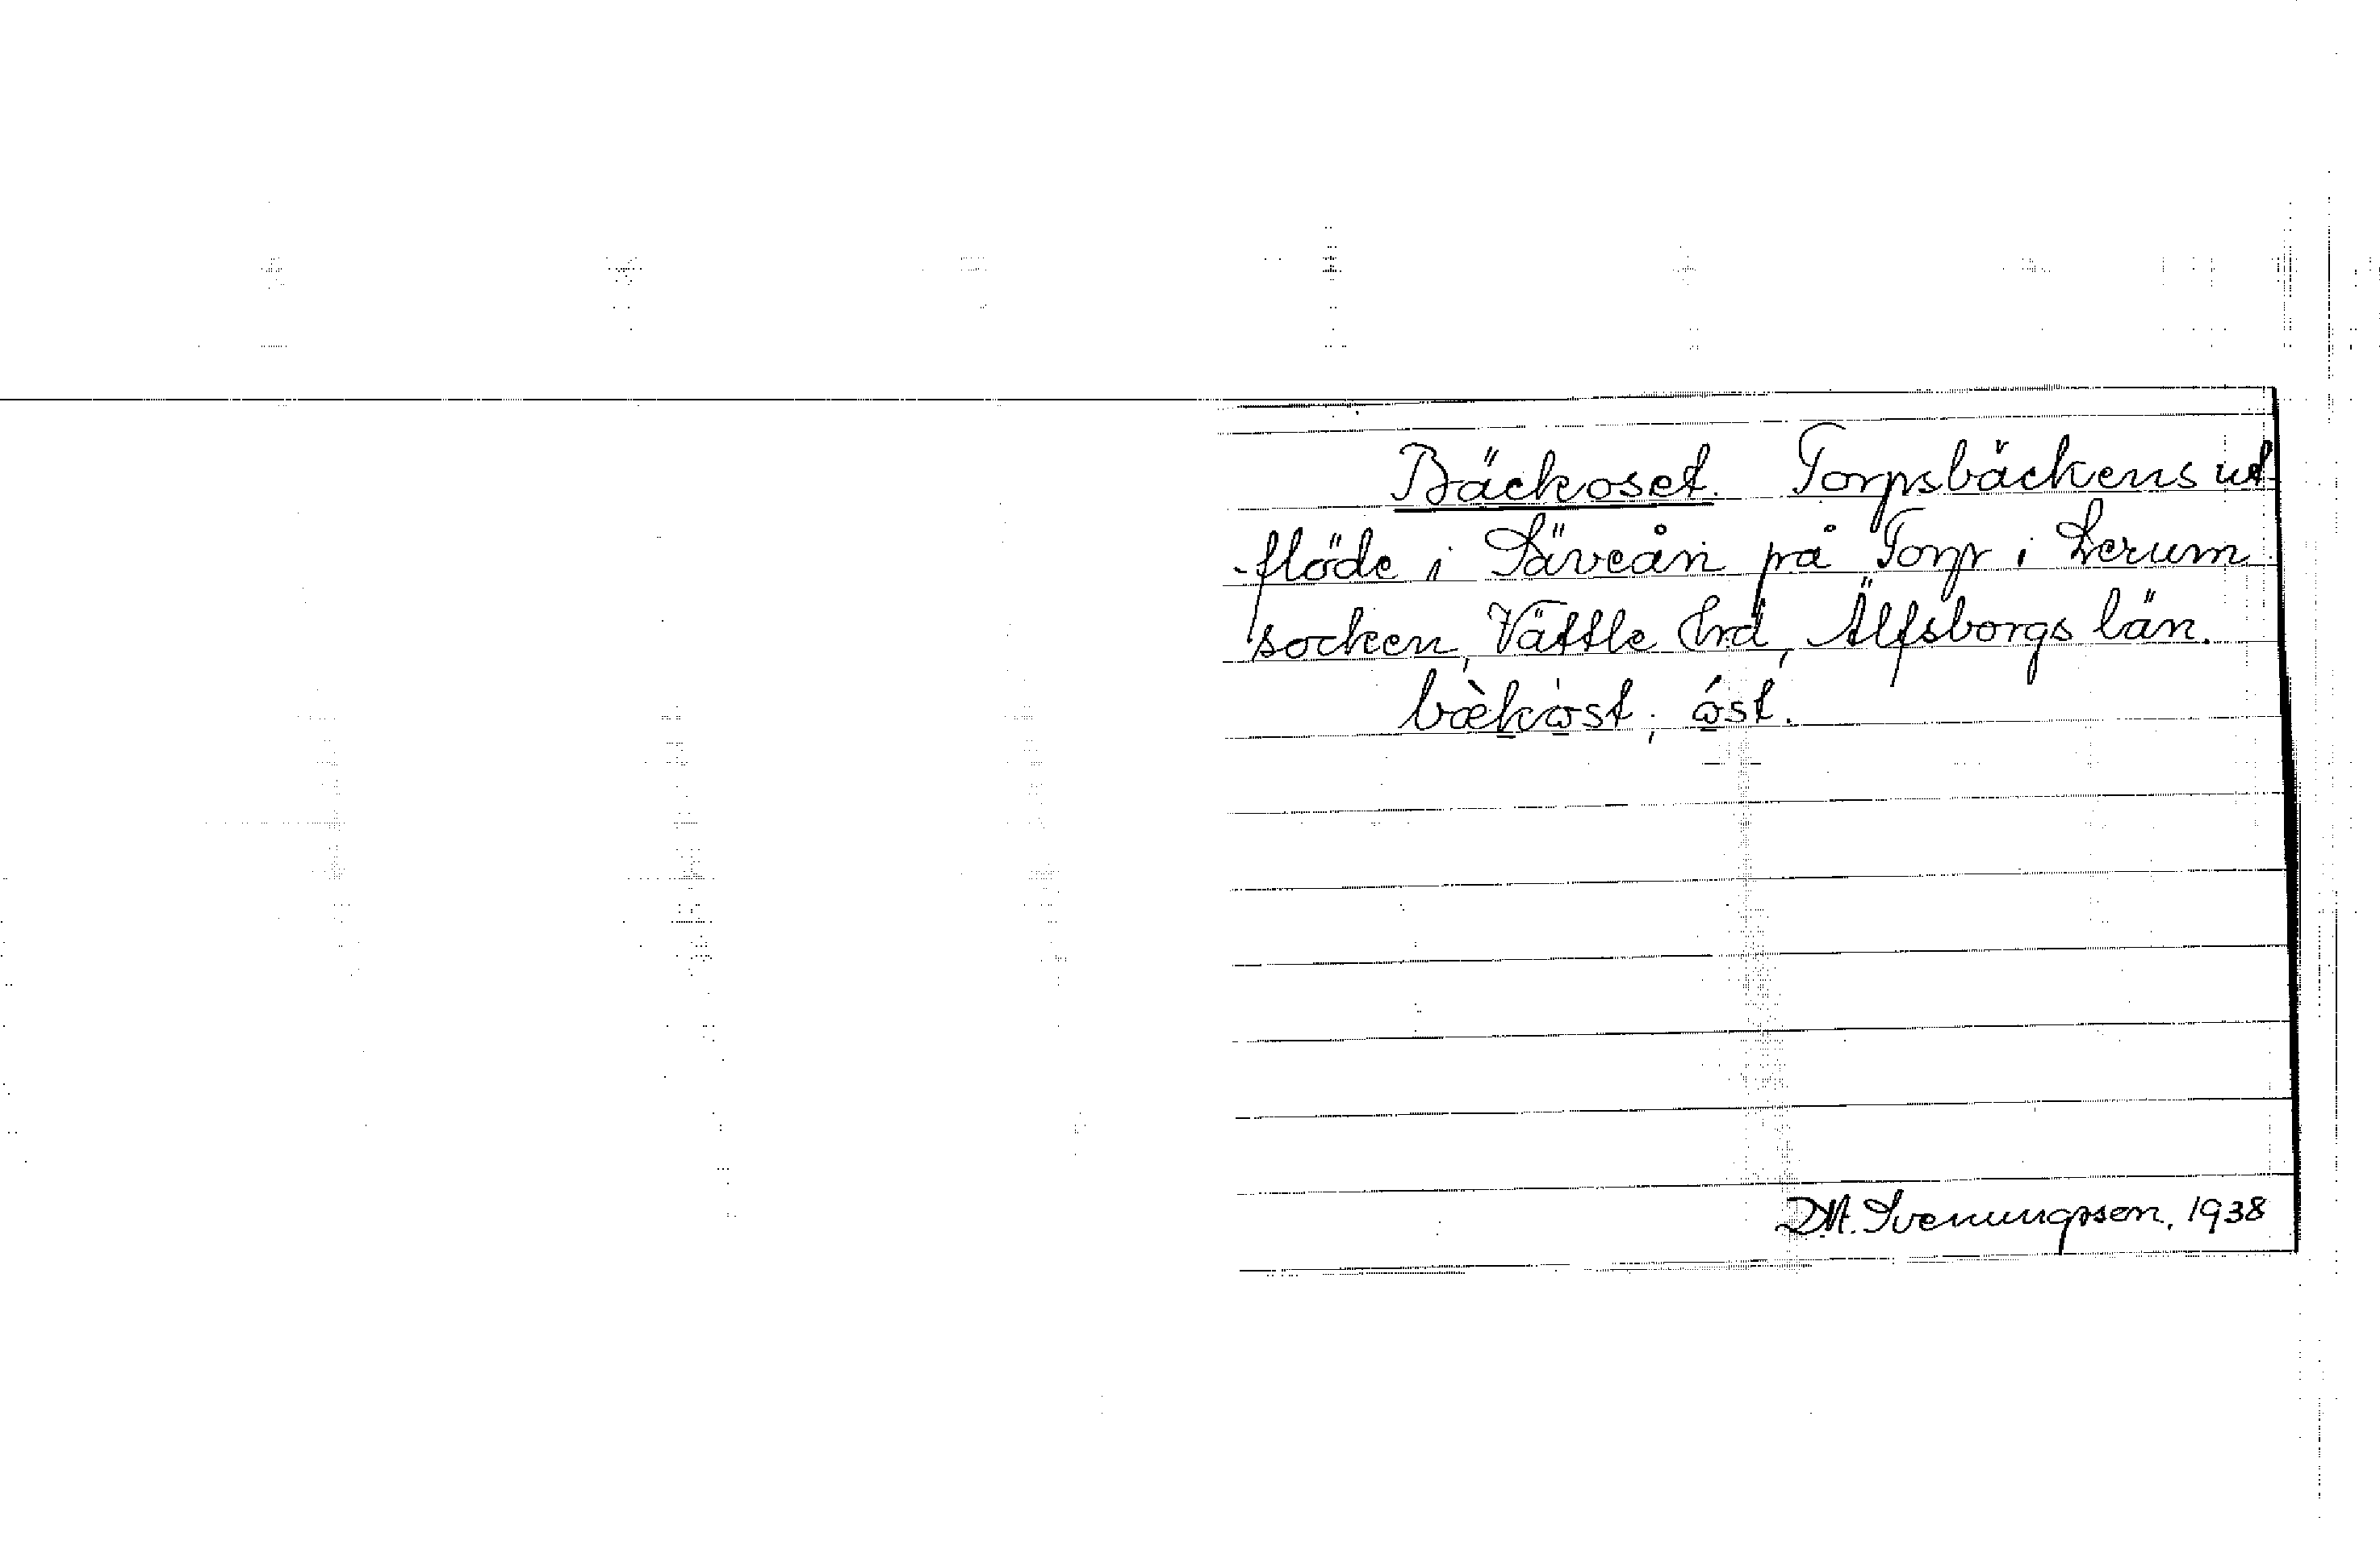 Bäckoset. Torpsbäckens ut-
flöde i Säveån på Torp i Lerum
socken, Vättle Hrd, Älfsborgs län.
bæ̀kòst; ǿst.
D.A. Svenungsson, 1938